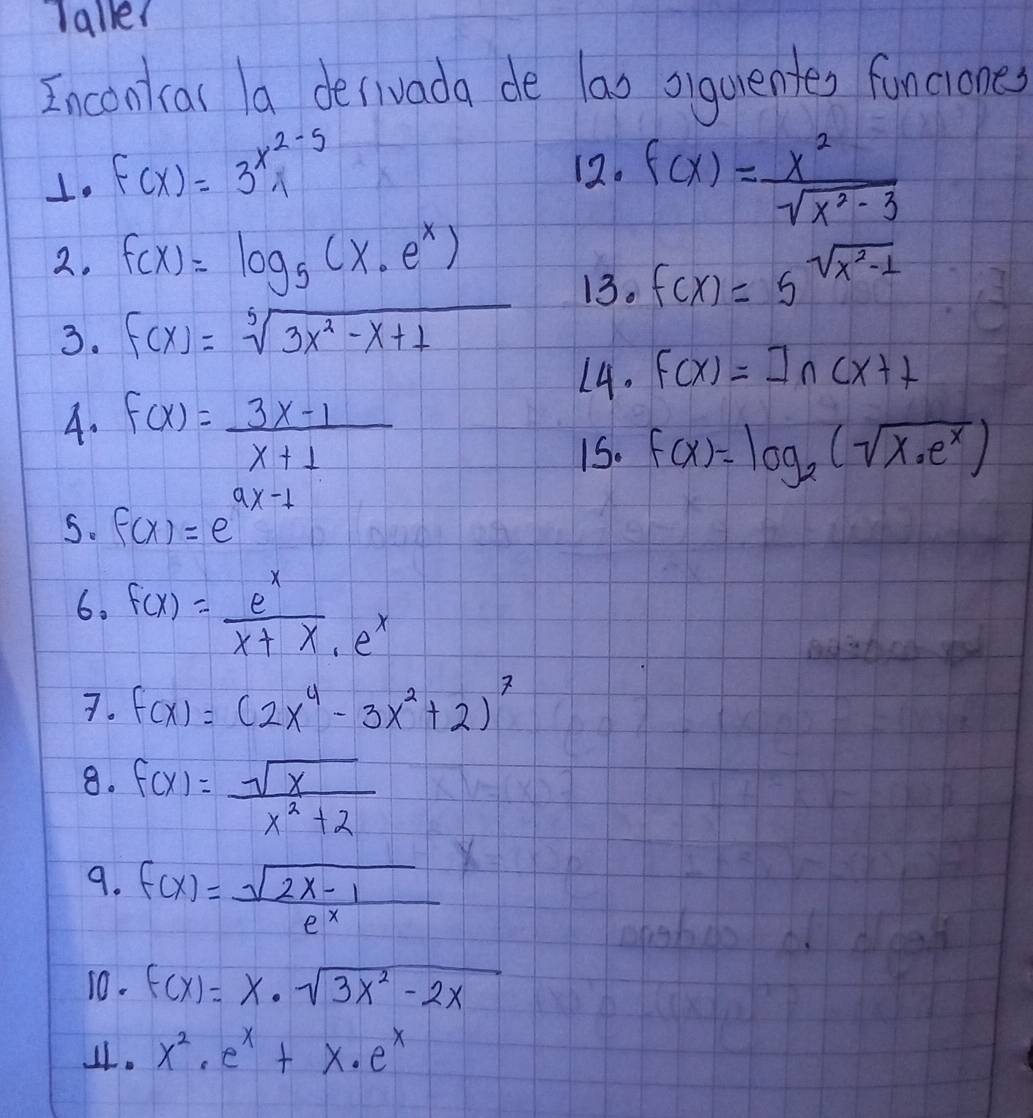 Taller
Encontrar la derivada de las siguientes funciones
1. f(x) = 3^{x^2-5}
2. f(x) = log₅ (x.e^x)
3. f(x) = ⁵√(3x² - x + 1)
4. f(x) = (3x-1)/(x+1)
5. f(x) = e^{ax-1}
6. f(x) = e^x/(x+x.e^x)
7. f(x) = (2x⁴ - 3x² + 2)⁷
8. f(x) = √x/(x²+2)
9. f(x) = √(2x-1)/e^x
10. f(x) = x.√(3x² - 2x)
11. x².e^x + x.e^x
12. f(x) = x²/√(x²-3)
13. f(x) = 5^{√(x²-1)}
14. f(x) = In (x+1
15. f(x) = log₂ (√(x.e^x))